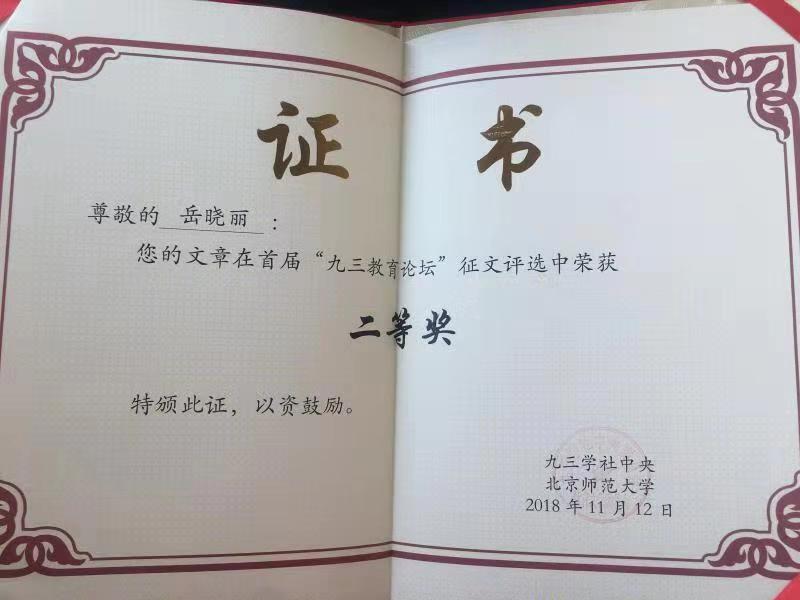 证 书
尊敬的 岳晓丽 :
您的文章在首届“九三教育论坛”征文评选中荣获
二等奖
特颁此证，以资鼓励。
九三学社中央
北京师范大学
2018 年 11 月 12 日